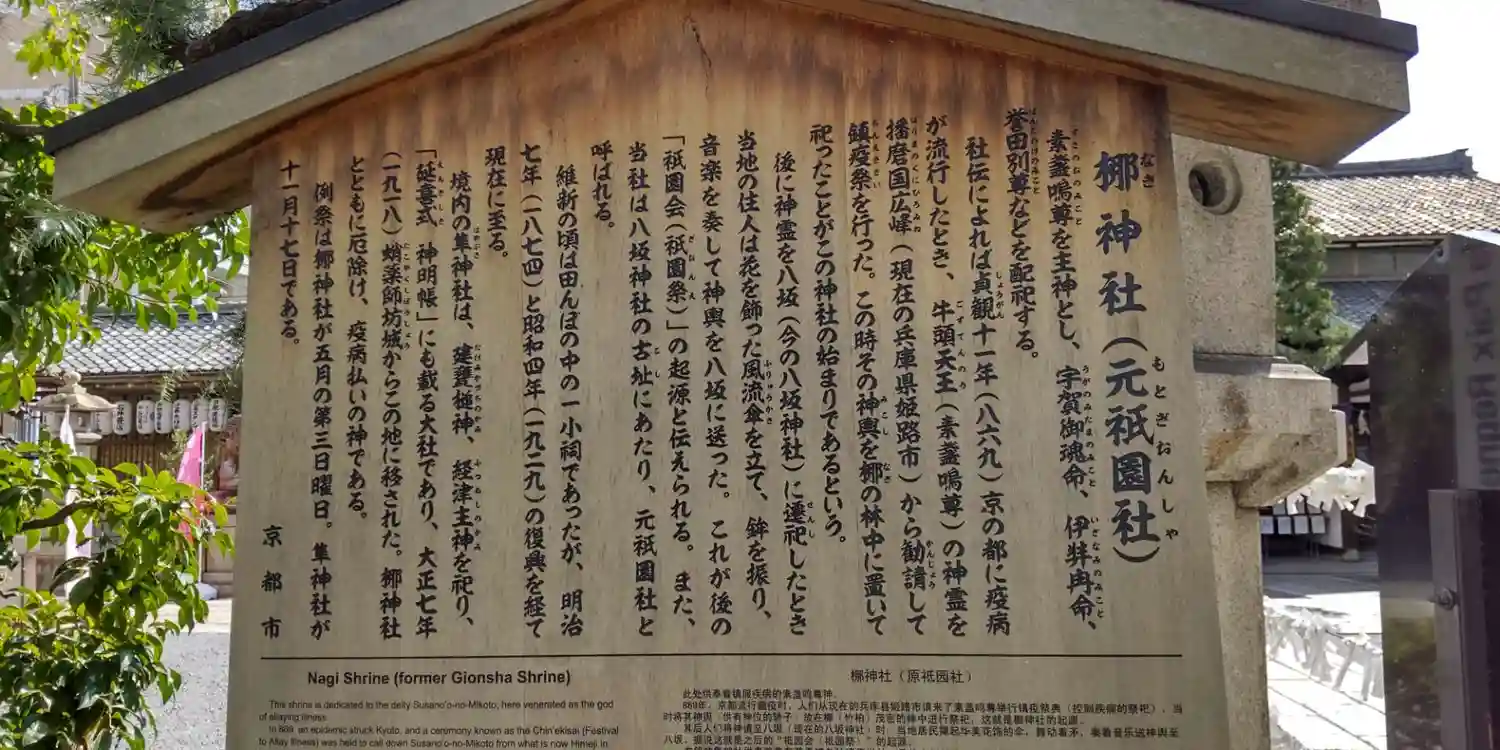 梛神社（元祇園社）
素盞嗚尊を主神とし、宇賀御魂命、伊弉冉命、
誉田別尊などを配祀する。
社伝によれば貞観十一年（八六九）京の都に疫病
が流行したとき、牛頭天王（素盞嗚尊）の神霊を
播磨国広峰（現在の兵庫県姫路市）から勧請して
鎮疫祭を行った。この時その神輿を梛の林中に置いて
祀ったことがこの神社の始まりであるという。
後に神霊を八坂（今の八坂神社）に遷祀したとき
当地の住人は花を飾った風流傘を立て、鉾を振り、
音楽を奏して神輿を八坂に送った。これが後の
「祇園会（祇園祭）」の起源と伝えられる。また、
当社は八坂神社の古址にあたり、元祇園社と
呼ばれる。
維新の頃は田んぼの中の一小祠であったが、明治
七年（一八七四）と昭和四年（一九二九）の復興を経て
現在に至る。
境内の隼神社は、建甕槌神、経津主神を祀り、
「延喜式　神明帳」にも載る大社であり、大正七年
（一九一八）蛸薬師坊城からこの地に移された。梛神社
とともに厄除け、疫病払いの神である。
例祭は梛神社が五月の第三日曜日。隼神社が
十一月十七日である。
京都市
Nagi Shrine (former Gionsha Shrine)
This shrine is dedicated to the deity Susano'o-no-Mikoto, here venerated as the god
of allaying illness.
In 869, an epidemic struck Kyoto, and a ceremony known as the Chin'ekisai (Festival
to Allay Illness) was held to call down Susano'o-no-Mikoto from what is now Himeji in
梛神社（原祗园社）
此处供奉着镇服疾病的素盏鸣尊神。
869年，京都流行瘟疫时，人们从现在的兵库县姬路市请来了素盏鸣尊举行镇疫祭典（控制疾病的祭祀），当
时将其神舆（供有神位的轿子）放在梛（竹柏）茂密的林中进行祭祀，这就是梛神社的起源。
其后人们将神请至八坂（现在的八坂神社）时，当地居民撑起华美花饰的伞，舞动着矛，奏着音乐送神舆至
八坂，据说这就是之后的“祗园会（祗园祭）”的起源。